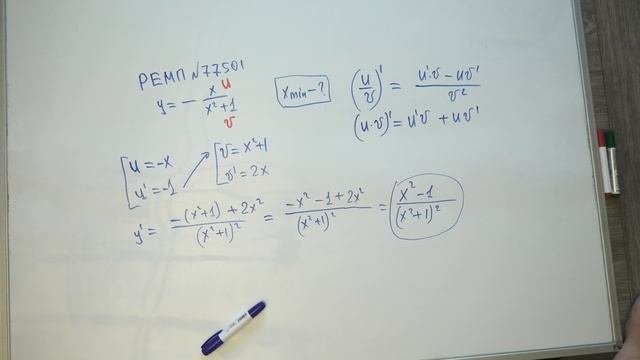 РЕМП №77501
y = - x/(x²+1) u v
xmin - ?
(u/v)' = (u'v - uv')/v²
(u·v)' = u'v + uv'
u = -x
u' = -1
v = x²+1
v' = 2x
y' = (-(x²+1) + 2x²)/(x²+1)² = (-x² - 1 + 2x²)/(x²+1)² = (x² - 1)/(x²+1)²